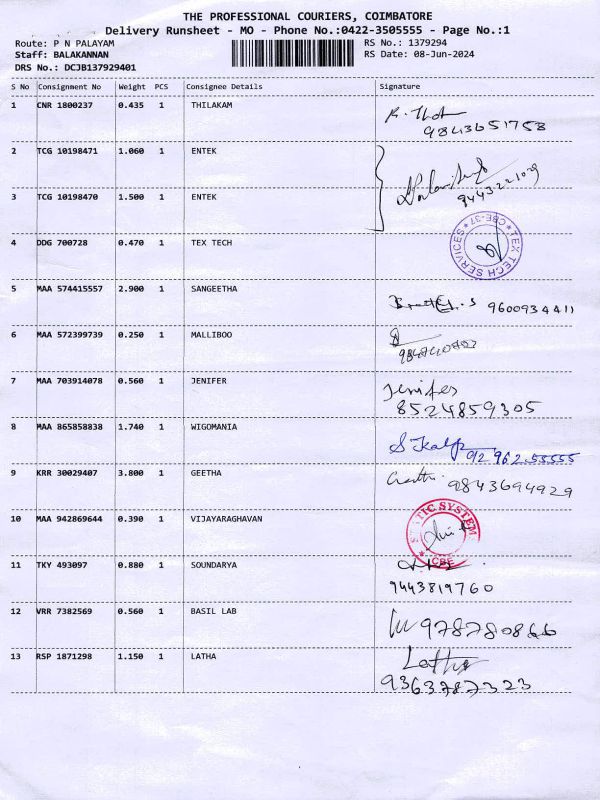 THE PROFESSIONAL COURIERS, COIMBATORE
Delivery Runsheet - MO - Phone No.:0422-3505555 - Page No.:1
Route: P N PALAYAM RS No.: 1379294
Staff: BALAKANNAN RS Date: 08-Jun-2024
DRS No.: DCJB137929401
S No Consignment No Weight PCS Consignee Details Signature
1 CNR 1800237 0.435 1 THILAKAM
9843651758
2 TCG 10198471 1.060 1 ENTEK
9443221029
3 TCG 10198470 1.500 1 ENTEK
4 DDG 700728 0.470 1 TEX TECH
TEX TECH SERVICES * CBE-37 *
5 MAA 574415557 2.900 1 SANGEETHA
9600934411
6 MAA 572399739 0.250 1 MALLIBOO
7 MAA 703914078 0.560 1 JENIFER Jenifer
8524859305
8 MAA 865858838 1.740 1 WIGOMANIA
92 962 55555
9 KRR 30029407 3.800 1 GEETHA
9843694929
10 MAA 942869644 0.390 1 VIJAYARAGHAVAN
STATIC SYSTEMS * CBE
11 TKY 493097 0.880 1 SOUNDARYA
9443819760
12 VRR 7382569 0.560 1 BASIL LAB
978780866
13 RSP 1871298 1.150 1 LATHA Latha
9363787323